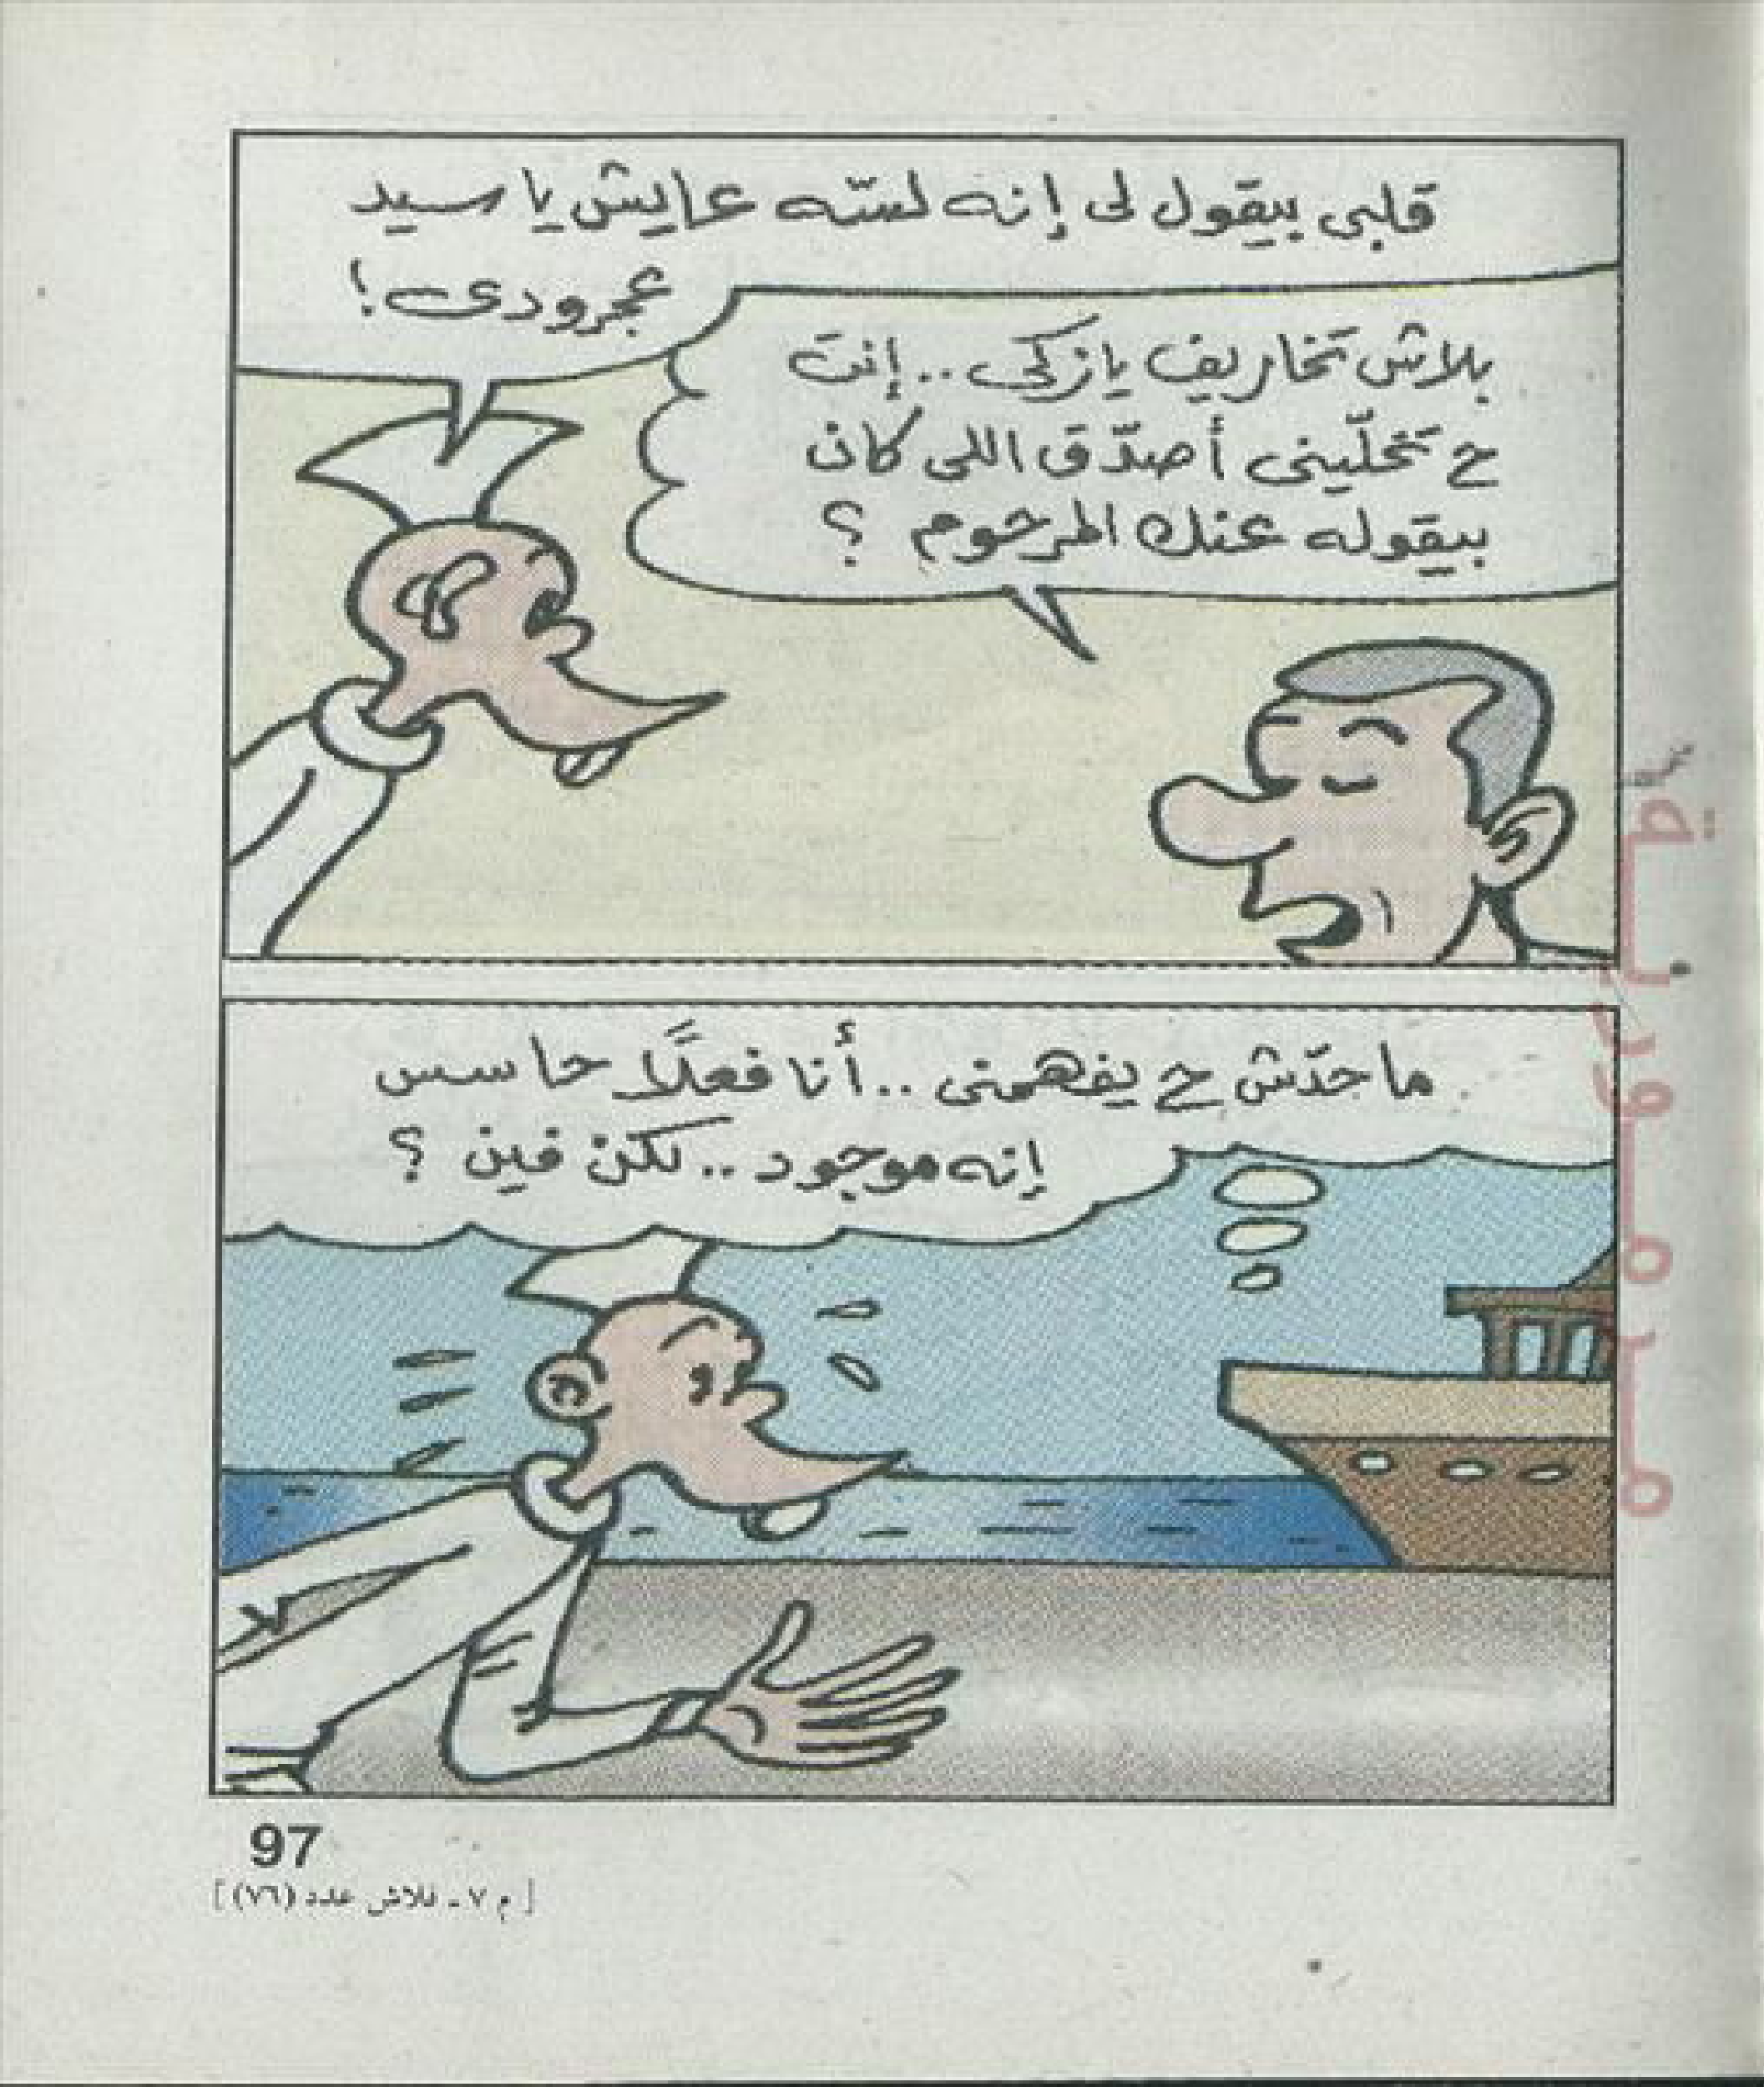 قلبى بيقول لى إنه لسّه عايش يا سيد
عجرودى!
بلاش تخاريف يا زكى.. إنت
ح تخلّينى أصدّق اللى كان
بيقوله عنك المرحوم ؟
ما حدّش ح يفهمنى.. أنا فعلًا حاسس
إنه موجود.. لكن فين ؟
97
[م ٧ ـ فلاش عدد (٧٦)]